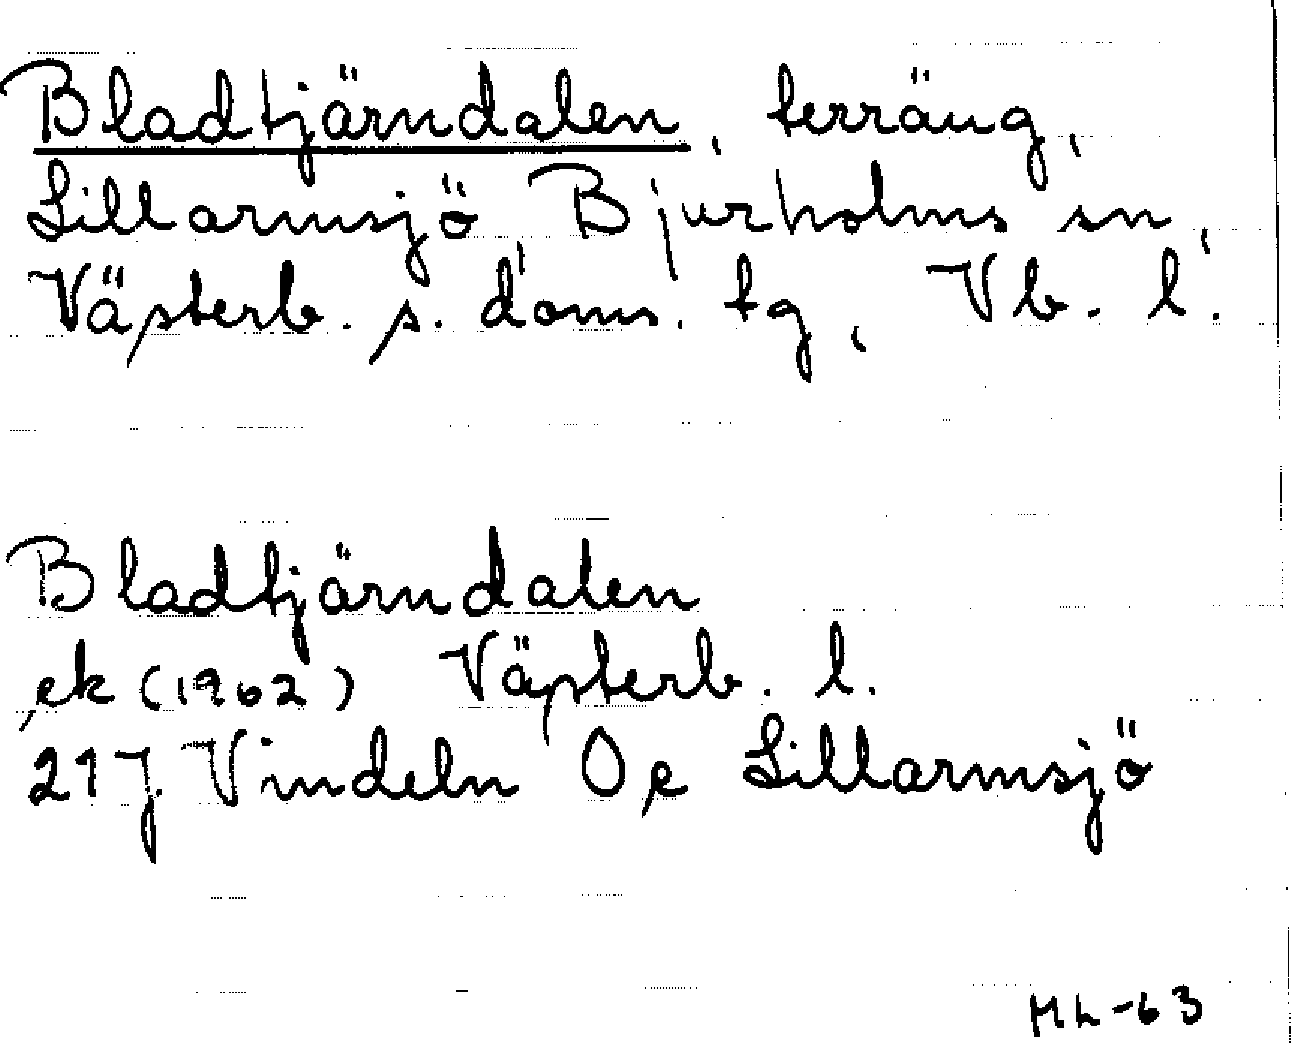 Bladtjärndalen, terräng,
Lillarmsjö, Bjurholms sn,
Västerb. s. doms. tg, Vb. l.
Bladtjärndalen
ek (1962) Västerb. l.
21J. Vindeln Oe Lillarmsjö
ML-63